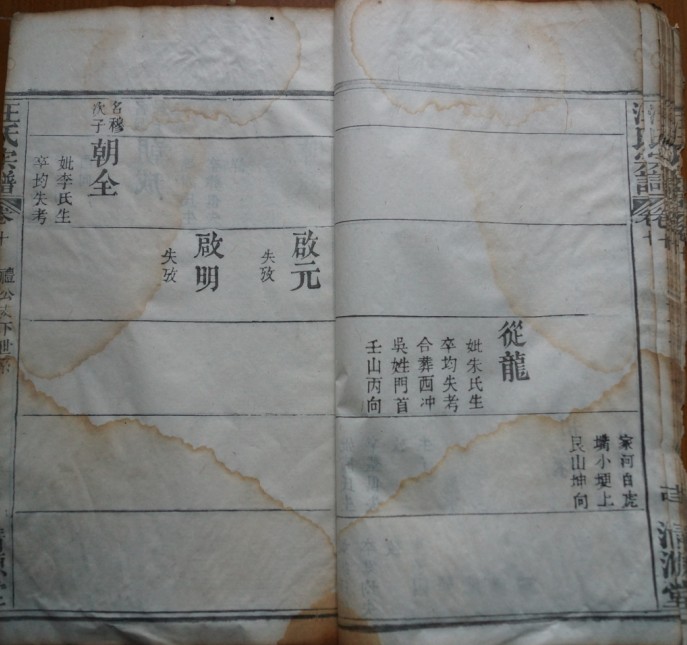 家河自虎
墦小埂上
艮山坤向
從龍
妣朱氏生
卒均失考
合葬西冲
吳姓門首
壬山丙向
啟元
失攷
啟明
失攷
名穆
次子
朝全
妣李氏生
卒均失考
汪氏宗譜
卷十
禮公
下世系
清源堂